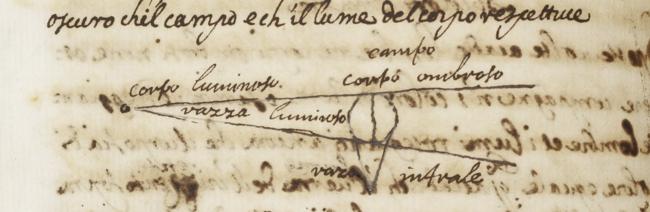 oscuro ch'il campo e ch'il lume del corpo respettiue
campo
corpo luminoso. corpo ombroso
razza luminoso
intrale